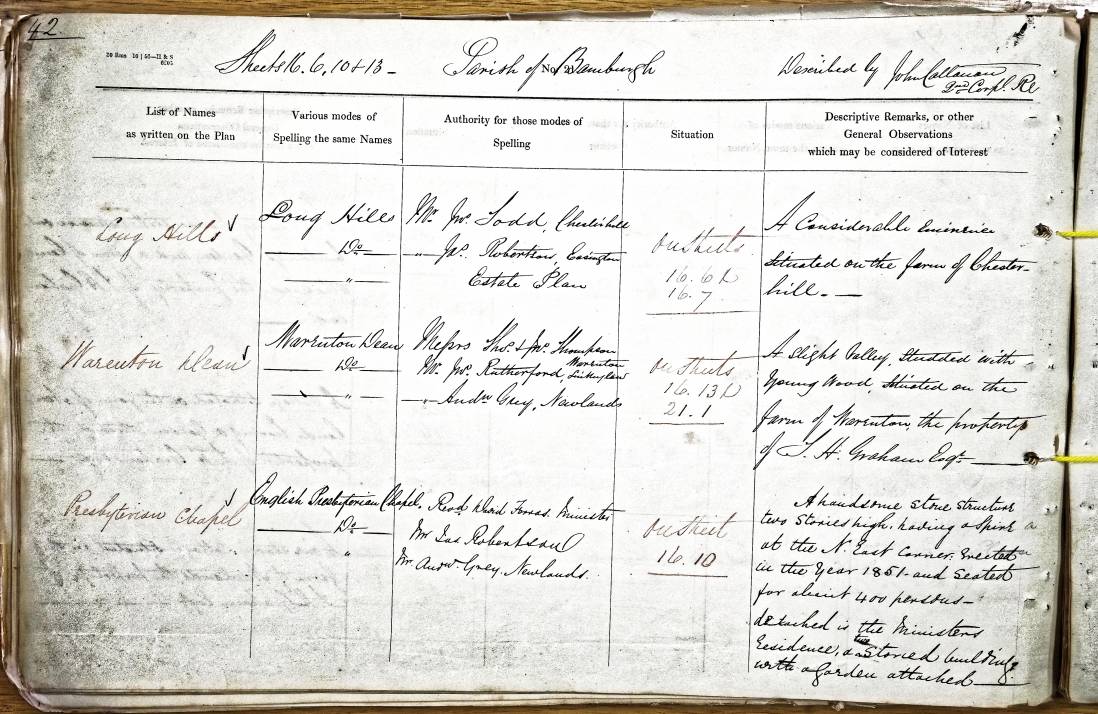 42
Sheets 16. 6, 10 & 13 -
Parish of No 21 Bamburgh
Described by John Callanan
2nd Corpl. RE
List of Names
as written on the Plan
Various modes of
Spelling the same Names
Authority for those modes of
Spelling
Situation
Descriptive Remarks, or other
General Observations
which may be considered of Interest
Long Hills
Long Hills
Do
"
Mr. Jno. Todd, Chesterhill
" Jas. Robertson, Easington
Estate Plan
On Sheets
16. 6 &
16. 7
A Considerable Eminence
Situated on the farm of Chester-
hill. —
Warenton Dean
Warenton Dean
Do
"
Messrs Thos. & Jno. Thompson
Warenton
Mr. Jno. Rutherford,
" Andw Grey, Newlands
On Sheets
16. 13 &
21. 1
A slight Valley, Studded with
Young Wood, Situated on the
farm of Warenton, the property
of T. H. Graham Esqr.
Presbyterian Chapel
English Presbyterian Chapel.
Do
"
Revd. David Minister
Mr Jas Robertson
Mr. Andw Grey. Newlands.
On Sheet
16. 10
A handsome Stone Structure
two Stories high, having a Spire
at the N. East Corner. Erected
in the Year 1851 and Seated
for about 400 persons -
detached is the Ministers
Residence, a two Storied building
with a Garden attached